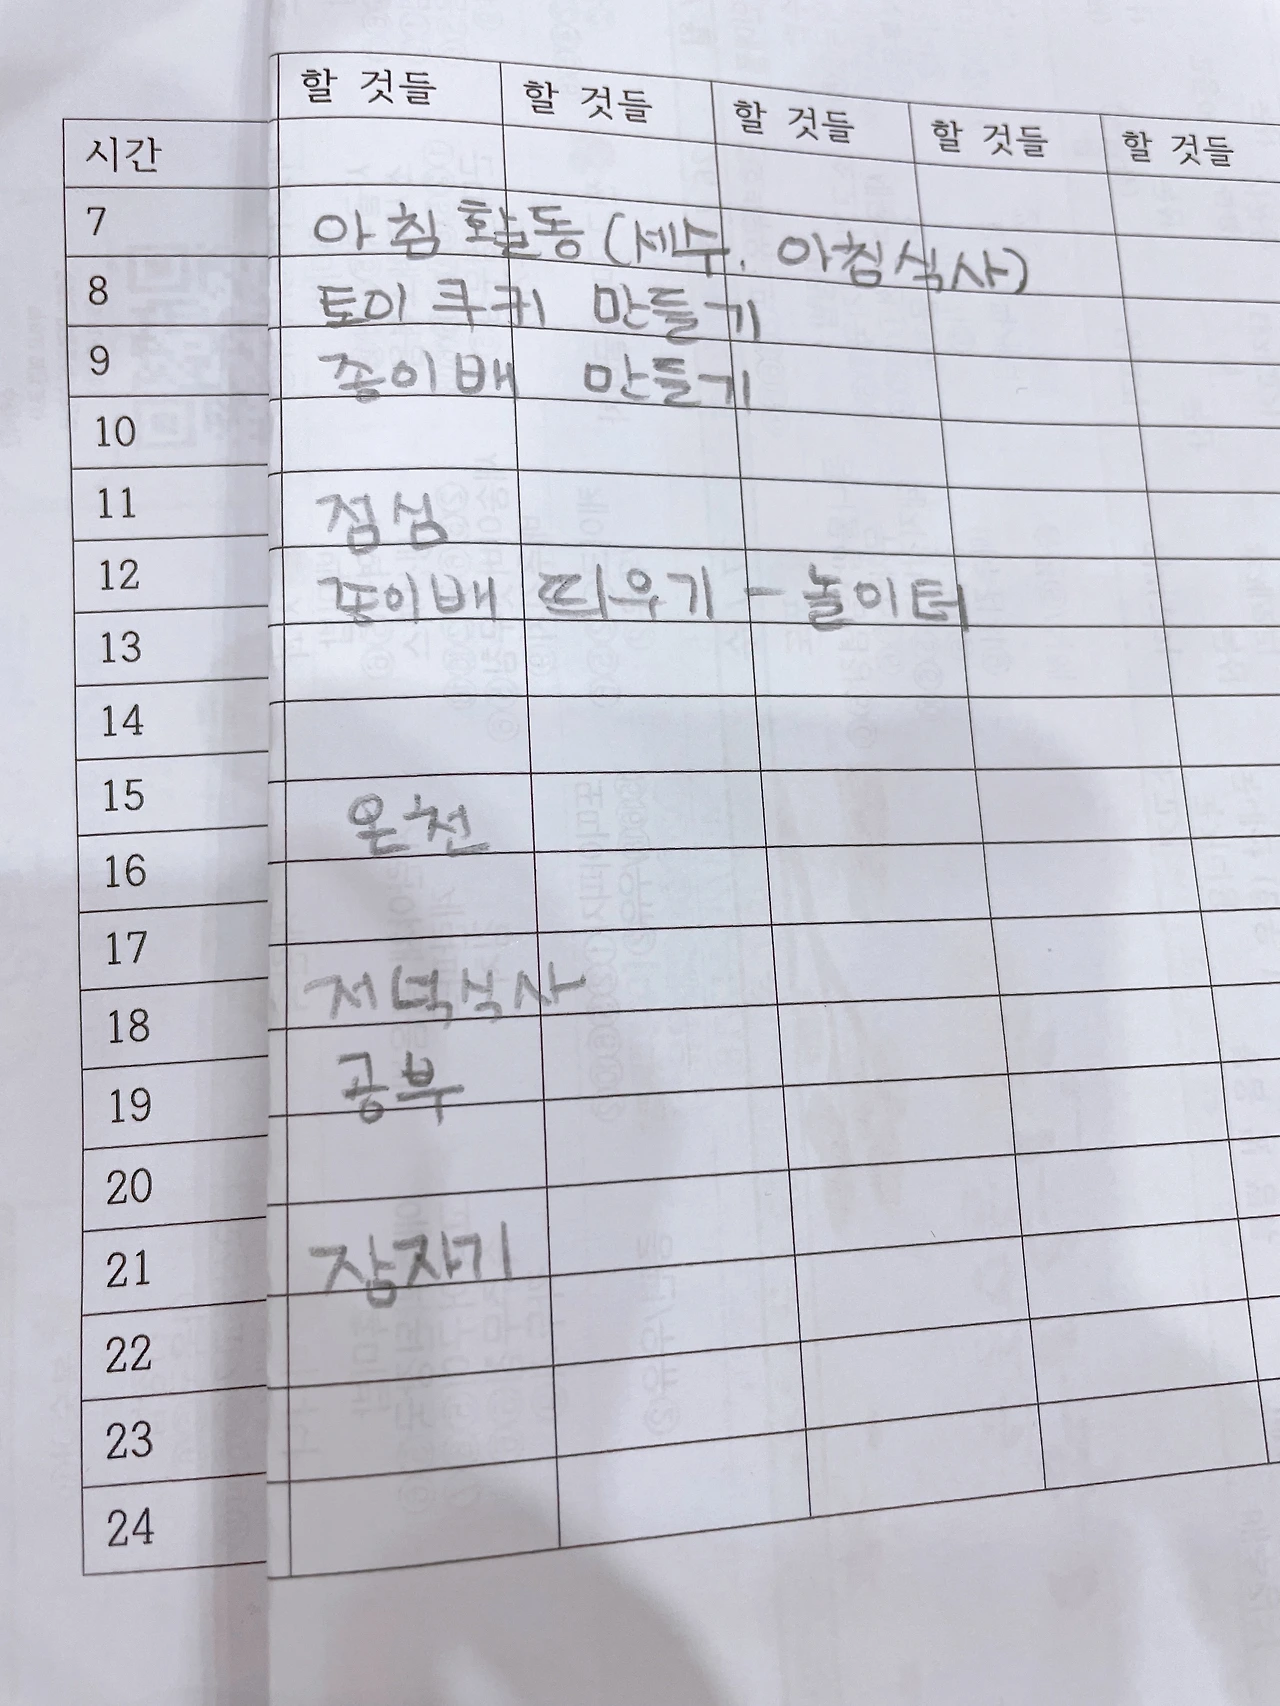 할 것들 할 것들 할 것들 할 것들 할 것들
시간
7 아침 활동 (세수, 아침식사)
8 토이 쿠키 만들기
9 종이배 만들기
10
11 점심
12 종이배 띄우기 - 놀이터
13
14
15 온천
16
17
18 저녁식사
19 공부
20
21 잠자기
22
23
24